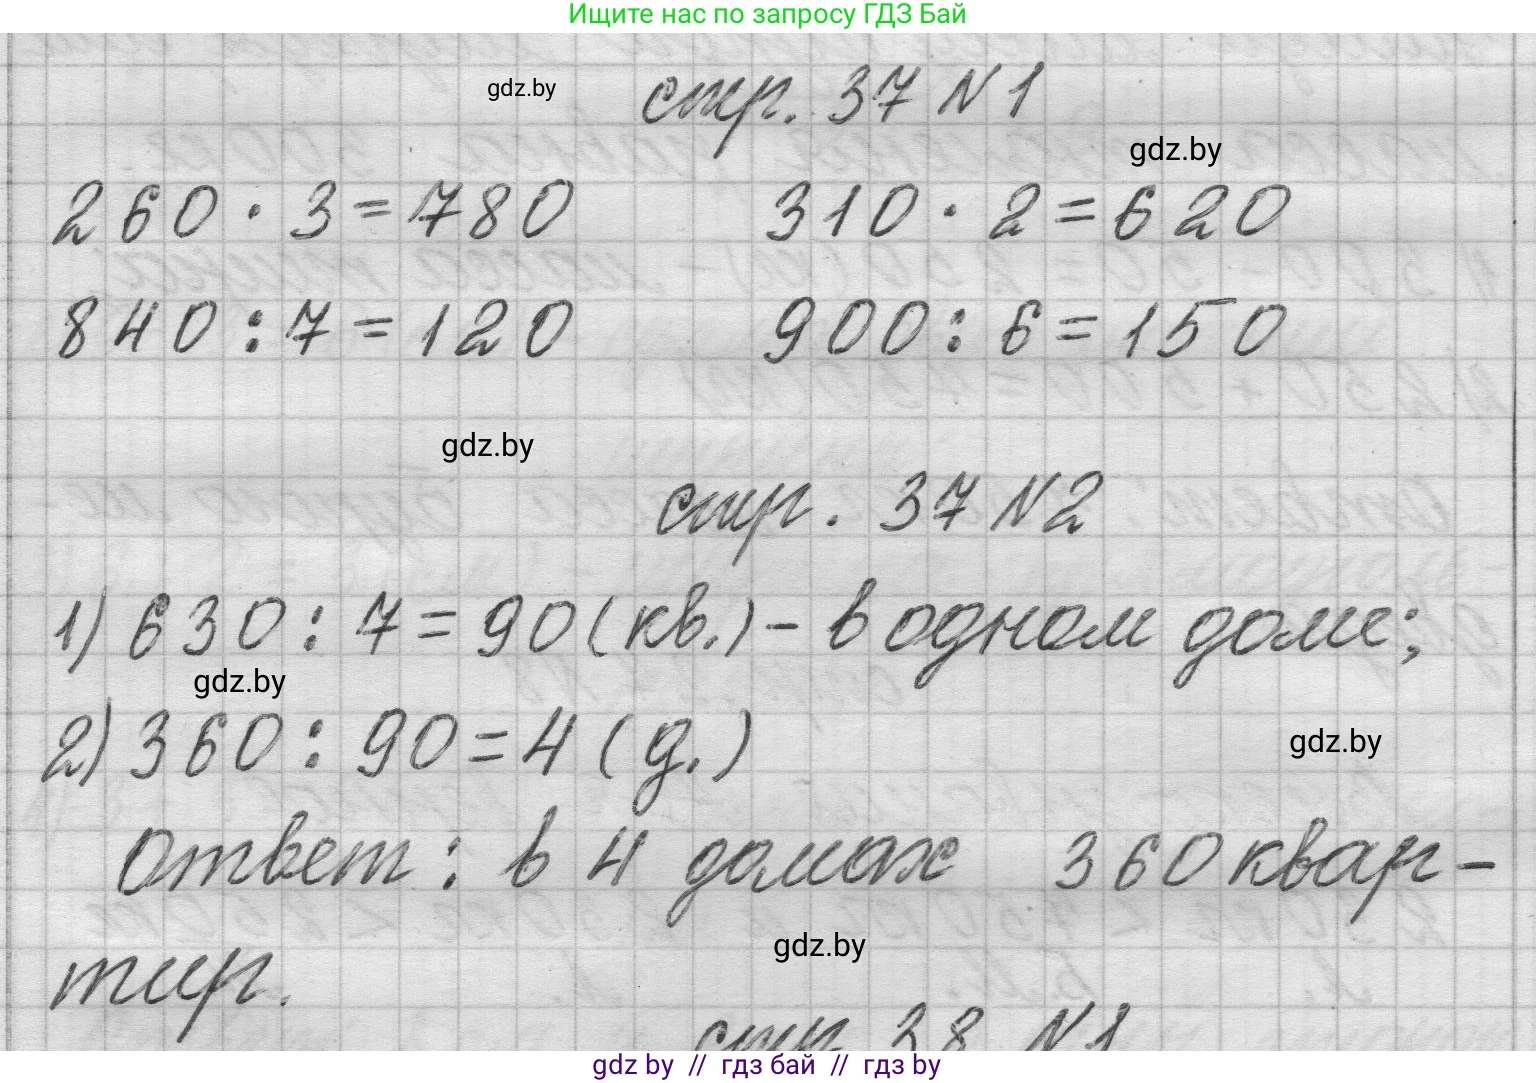 Ищите нас по запросу ГДЗ Бай
gdz.by
стр. 37 N 1
gdz.by
260 · 3 = 780 310 · 2 = 620
840 : 7 = 120 900 : 6 = 150
gdz.by
стр. 37 N 2
1) 630 : 7 = 90 (кв.) - в одном доме;
gdz.by
2) 360 : 90 = 4 (д.)
gdz.by
Ответ: в 4 домах 360 квар-
gdz.by
тир.
стр. 38 N 1
gdz by // гдз бай // гдз by